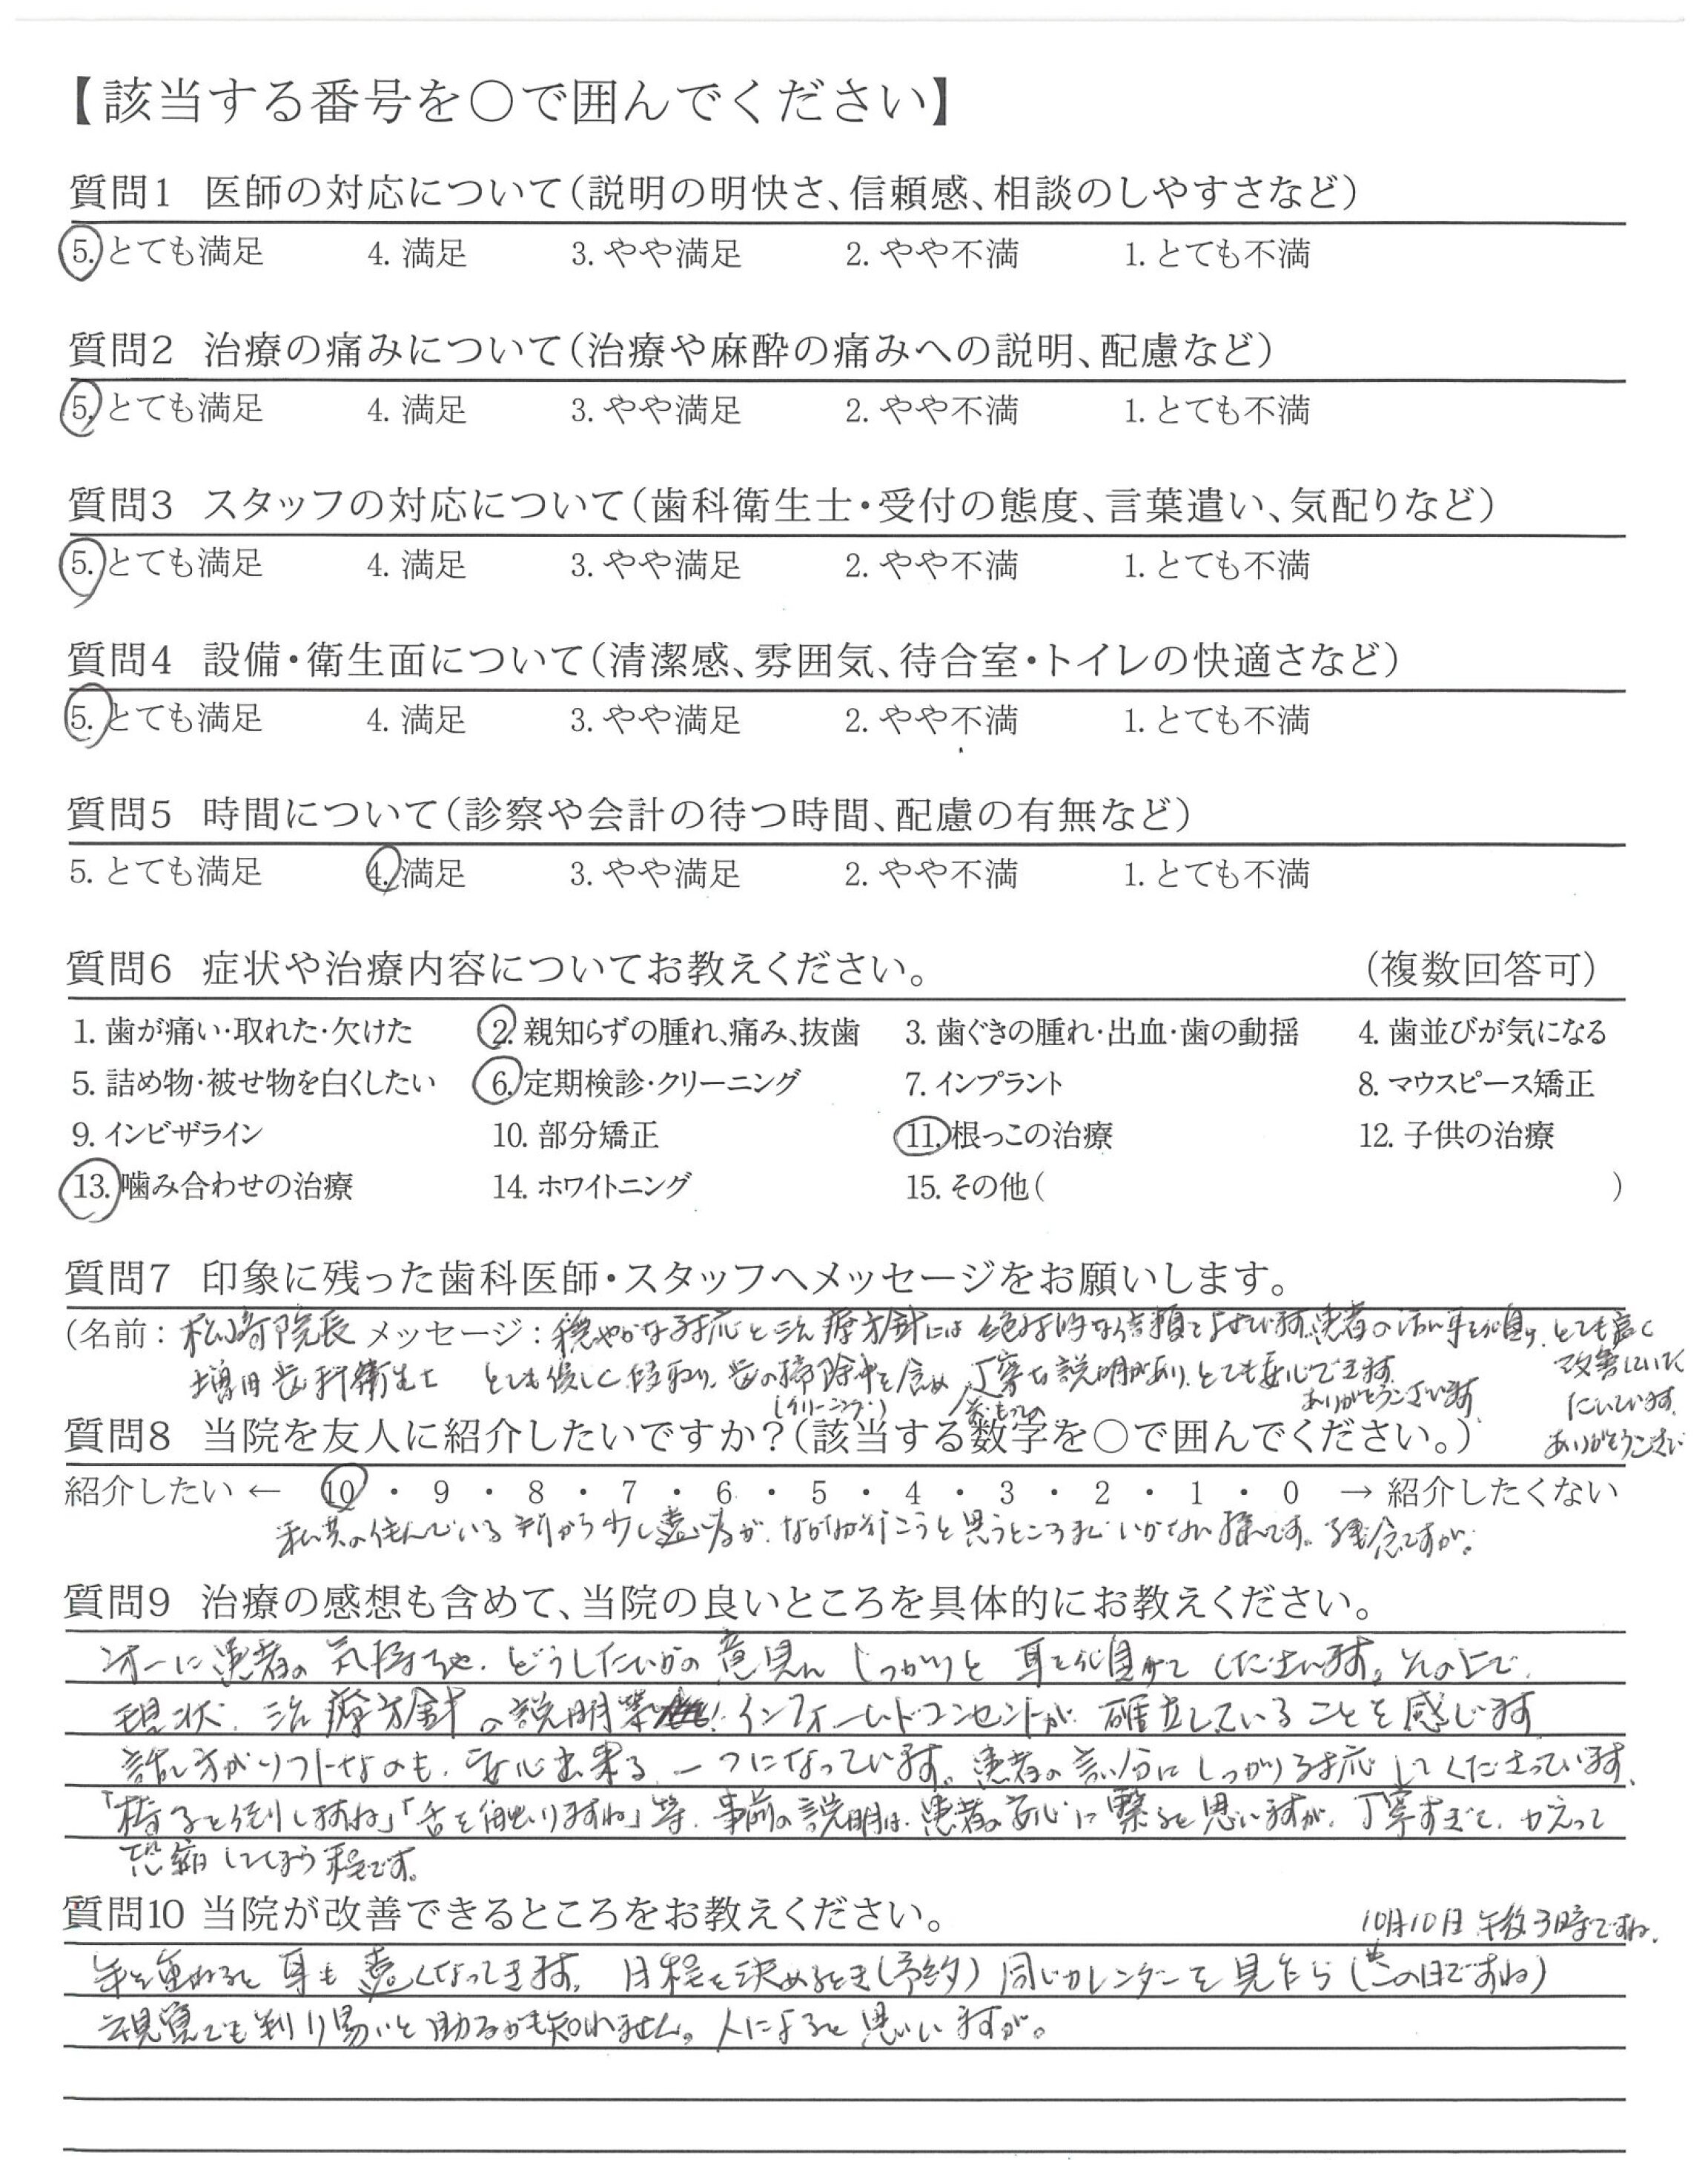 【該当する番号を○で囲んでください】
質問1 医師の対応について(説明の明快さ、信頼感、相談のしやすさなど)
5. とても満足 4. 満足 3. やや満足 2. やや不満 1. とても不満
質問2 治療の痛みについて(治療や麻酔の痛みへの説明、配慮など)
5. とても満足 4. 満足 3. やや満足 2. やや不満 1. とても不満
質問3 スタッフの対応について(歯科衛生士・受付の態度、言葉遣い、気配りなど)
5. とても満足 4. 満足 3. やや満足 2. やや不満 1. とても不満
質問4 設備・衛生面について(清潔感、雰囲気、待合室・トイレの快適さなど)
5. とても満足 4. 満足 3. やや満足 2. やや不満 1. とても不満
質問5 時間について(診察や会計の待つ時間、配慮の有無など)
5. とても満足 4. 満足 3. やや満足 2. やや不満 1. とても不満
質問6 症状や治療内容についてお教えください。 (複数回答可)
1. 歯が痛い・取れた・欠けた 2. 親知らずの腫れ、痛み、抜歯 3. 歯ぐきの腫れ・出血・歯の動揺 4. 歯並びが気になる
5. 詰め物・被せ物を白くしたい 6. 定期検診・クリーニング 7. インプラント 8. マウスピース矯正
9. インビザライン 10. 部分矯正 11. 根っこの治療 12. 子供の治療
13. 噛み合わせの治療 14. ホワイトニング 15. その他( )
質問7 印象に残った歯科医師・スタッフへメッセージをお願いします。
(名前: 松崎院長 メッセージ: 穏やかな対応と治療方針には絶対的な信頼を 患者の話に耳を傾け、とても良く
改善していた
だいています。
ありがとうござい
増田歯科衛生士 とても優しく 歯の掃除中を含め 丁寧な説明があり、とても安心できます。
(クリーニング) ありがとうございます
質問8 当院を友人に紹介したいですか?(該当する数字を○で囲んでください。)
紹介したい ← 10 ・ 9 ・ 8 ・ 7 ・ 6 ・ 5 ・ 4 ・ 3 ・ 2 ・ 1 ・ 0 → 紹介したくない
私共の住んでいる所から少し遠い為か、なかなか行こうと思うところまでいかない様です。残念ですが。
質問9 治療の感想も含めて、当院の良いところを具体的にお教えください。
才一に患者の気持ちや、どうしたいかの意見に しっかりと耳を傾けてくださいます。その上で、
現状、治療方針の説明等 インフォームドコンセントが確立していることを感じます
話し方がソフトなのも、安心出来る一つになっています。患者の言い分にしっかり対応してくださっています。
「椅子を倒しますね」「舌を触りますね」等、事前の説明は、患者の安心に繋ると思いますが、丁寧すぎて、かえって
恐縮してしまう程です。
質問10 当院が改善できるところをお教えください。
10月10日 午後3時ですね。
年を重ねると耳も遠くなってきます。日程を決めるとき(予約) 同じカレンダーを見ながら(この日ですね)
視覚でも判り易いと助るかも知れません。人によると思いますが。